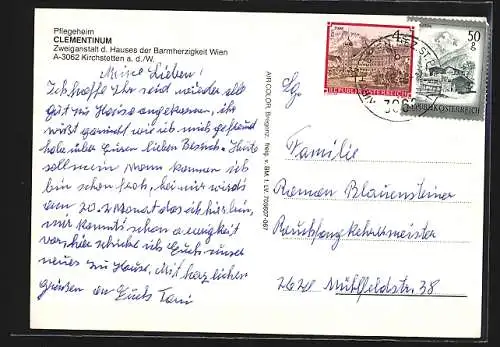 Pflegeheim
CLEMENTINUM
Zweiganstalt d. Hauses der Barmherzigkeit Wien
A-3062 Kirchstetten a. d./W.
Meine Lieben!
Ich hoffe Ihr seid wieder alle
gut zu Hause angekommen, ihr
wißt garnicht wie ich mich gefreut
habe über Euren lieben Besuch. Heute
soll mein Mann kommen ich
bin schon froh, bei mir wird's
dem 20. 2 Monat das ich hier bin,
mir kommt's schon a ewigkeit
vor, hier schicke ich Euch unser
neues zu Hause. Mit herzlichen
grüßen an Euch Toni
AIR COLOR, Bregenz
4
REPUBLIK ÖSTERREICH
50
g
REPUBLIK ÖSTERREICH
3062
Fg.
Familie
Roman Blauensteiner
Rauchfangkehrermeister
2620 Mühlfeldstr. 38